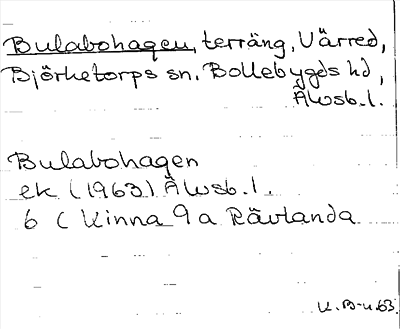 Bulabohagen, terräng, Värred,
Björketorps sn, Bollebygds hd,
Älvsb. l.
Bulabohagen
ek (1963) Älvsb. l.
6 C Kinna 9 a Rävlanda
K. B-n. 63.